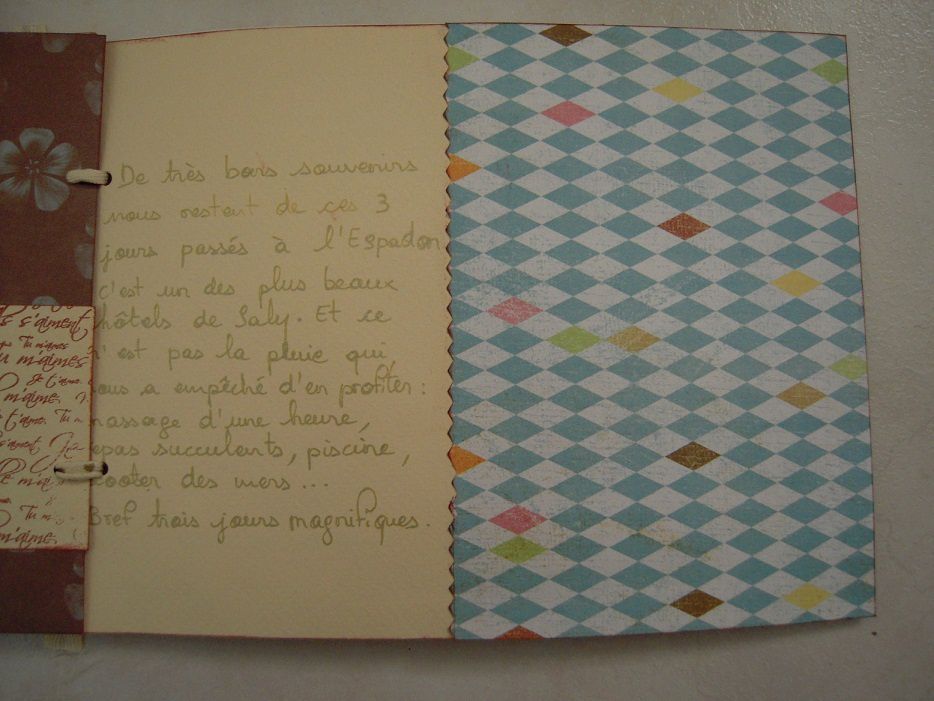 De très bons souvenirs
nous restent de ces 3
jours passés à l'Espadon
c'est un des plus beaux
hôtels de Saly. Et ce
n'est pas la pluie qui
nous a empêché d'en profiter :
massage d'une heure,
repas succulents, piscine,
scooter des mers...
Bref trois jours magnifiques.
s'aiment
Tu m'aimes
m'aimes
Je t'aime.
m'aime
t'aime. Tu m
s'aiment
Tu m
m'aime